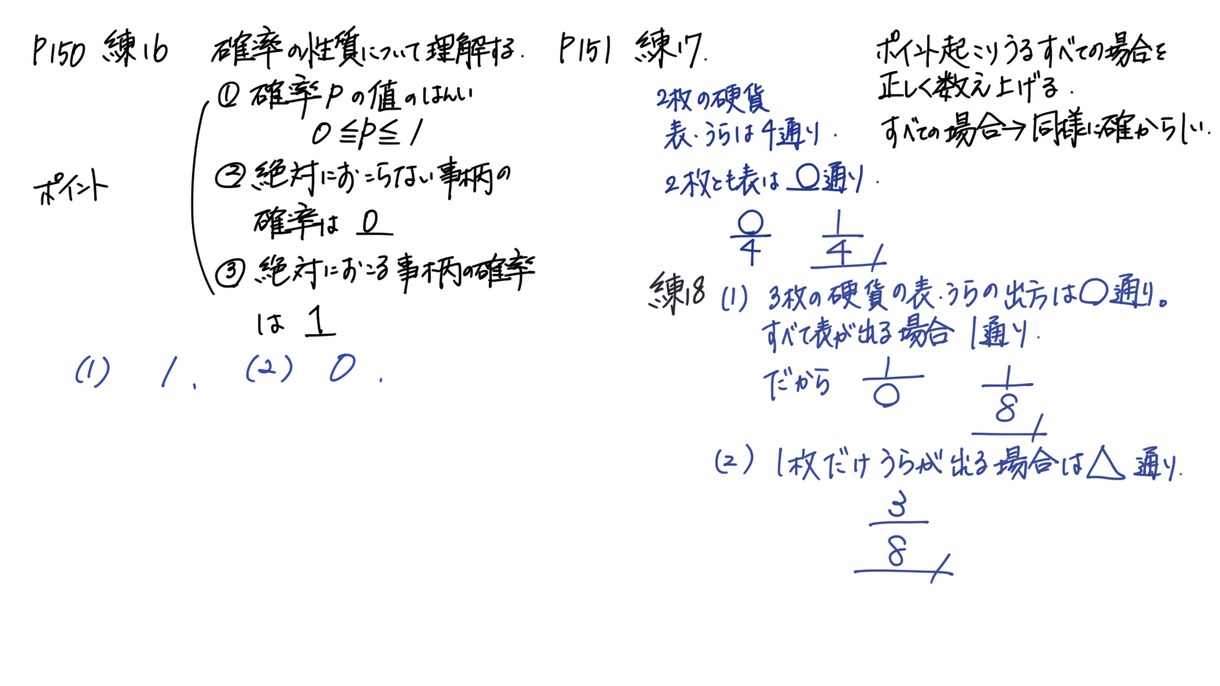 P150 練16 確率の性質について理解する.
① 確率Pの値のはんい
0≦P≦1
ポイント
② 絶対におこらない事柄の
確率は 0
③ 絶対におこる事柄の確率
は 1
(1) 1. (2) 0.
P151 練17.
ポイント起こりうるすべての場合を
正しく数え上げる.
すべての場合→同様に確からしい.
2枚の硬貨
表・うらは4通り.
2枚とも表は ○通り.
○/4 1/4
練18 (1) 3枚の硬貨の表・うらの出方は○通り。
すべて表が出る場合 1通り.
だから 1/○ 1/8
(2) 1枚だけうらが出る場合は△通り.
3/8